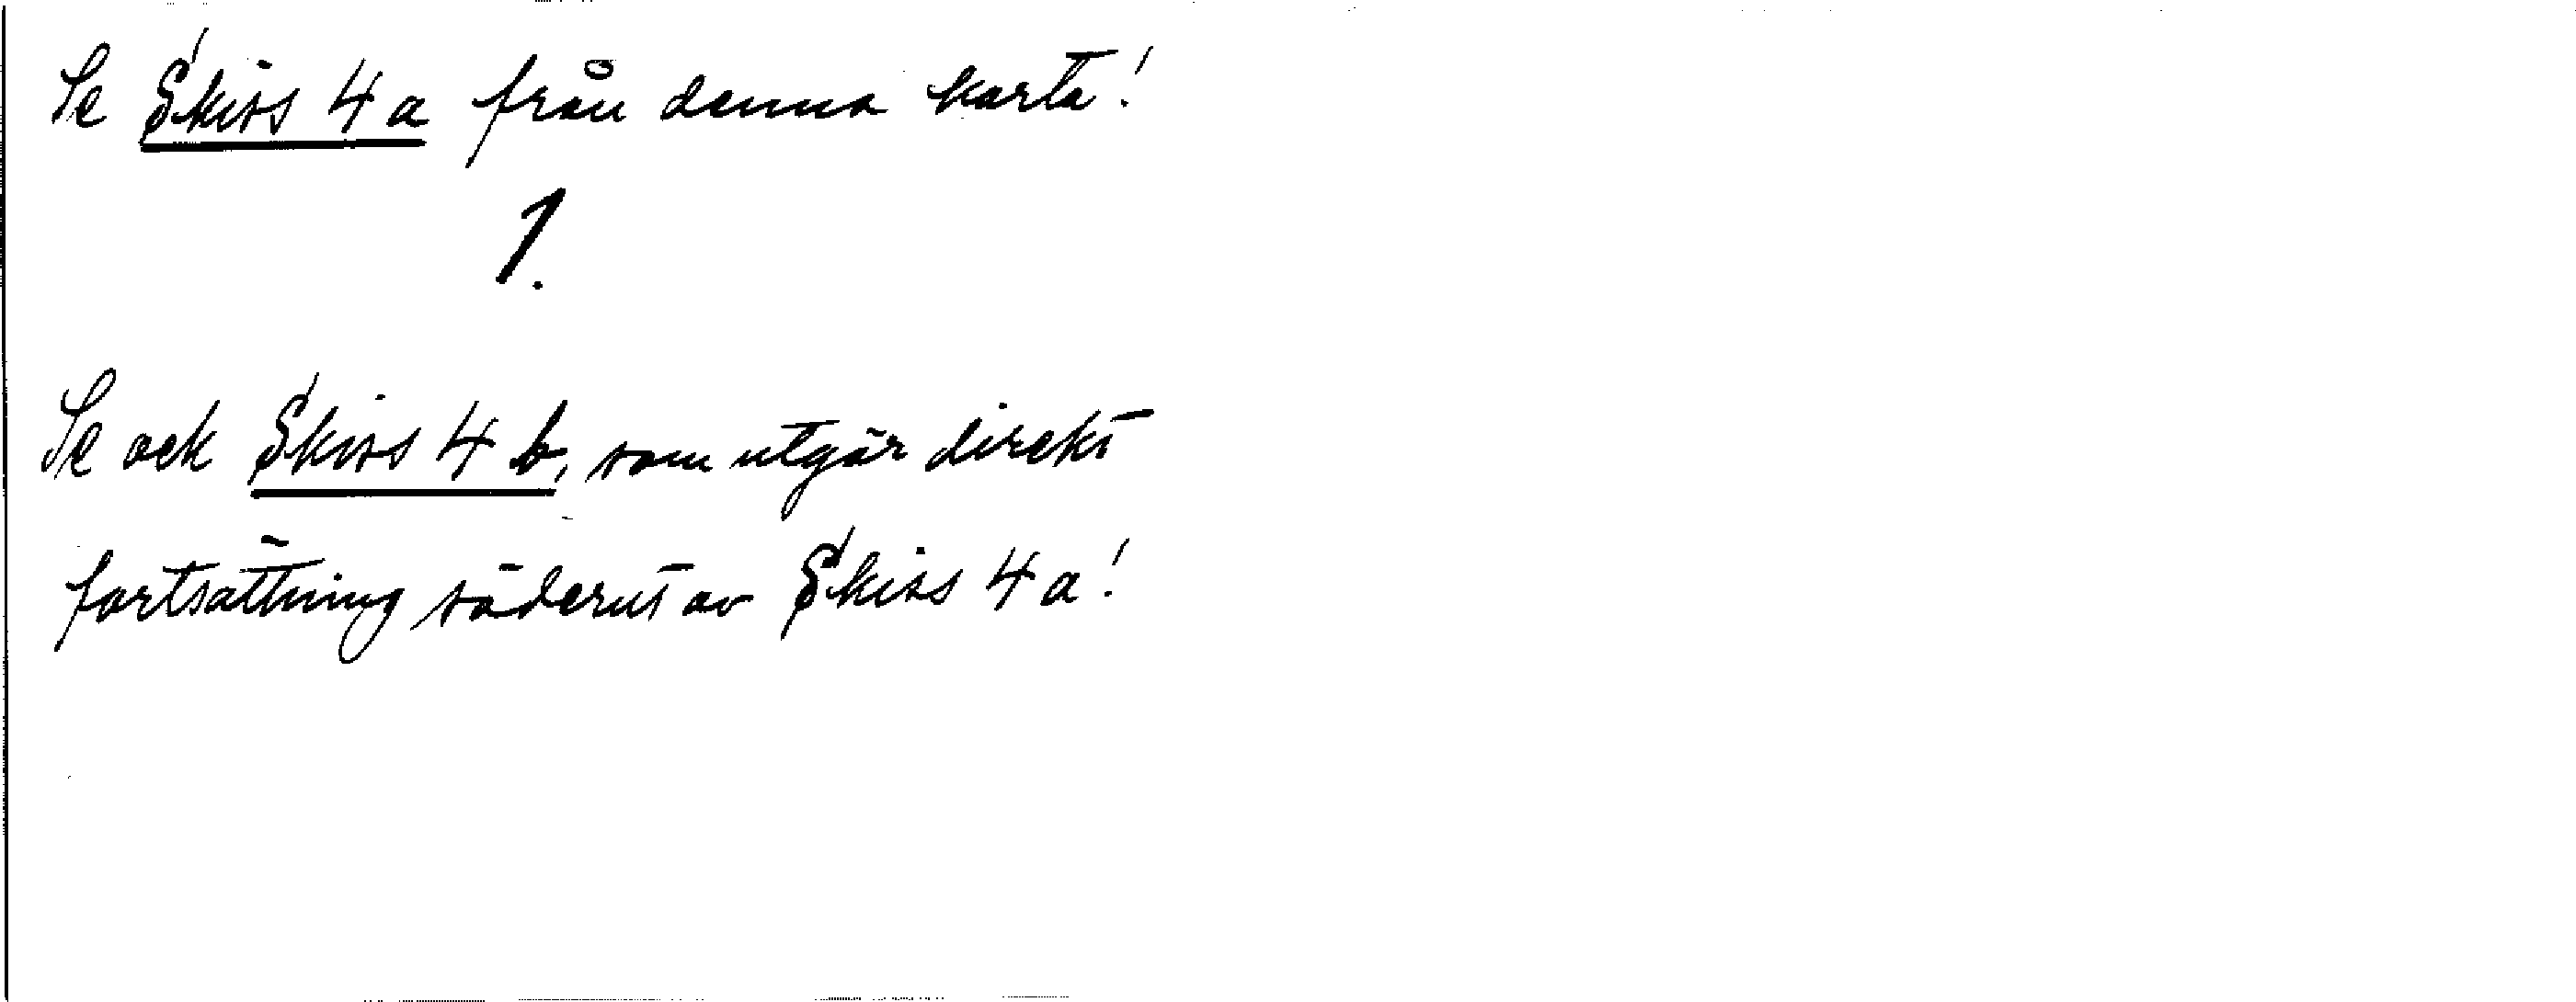 Se Skiss 4a från denna karta!
1.
Se ock Skiss 4 b, som utgör direkt
fortsättning söderut av Skiss 4a!